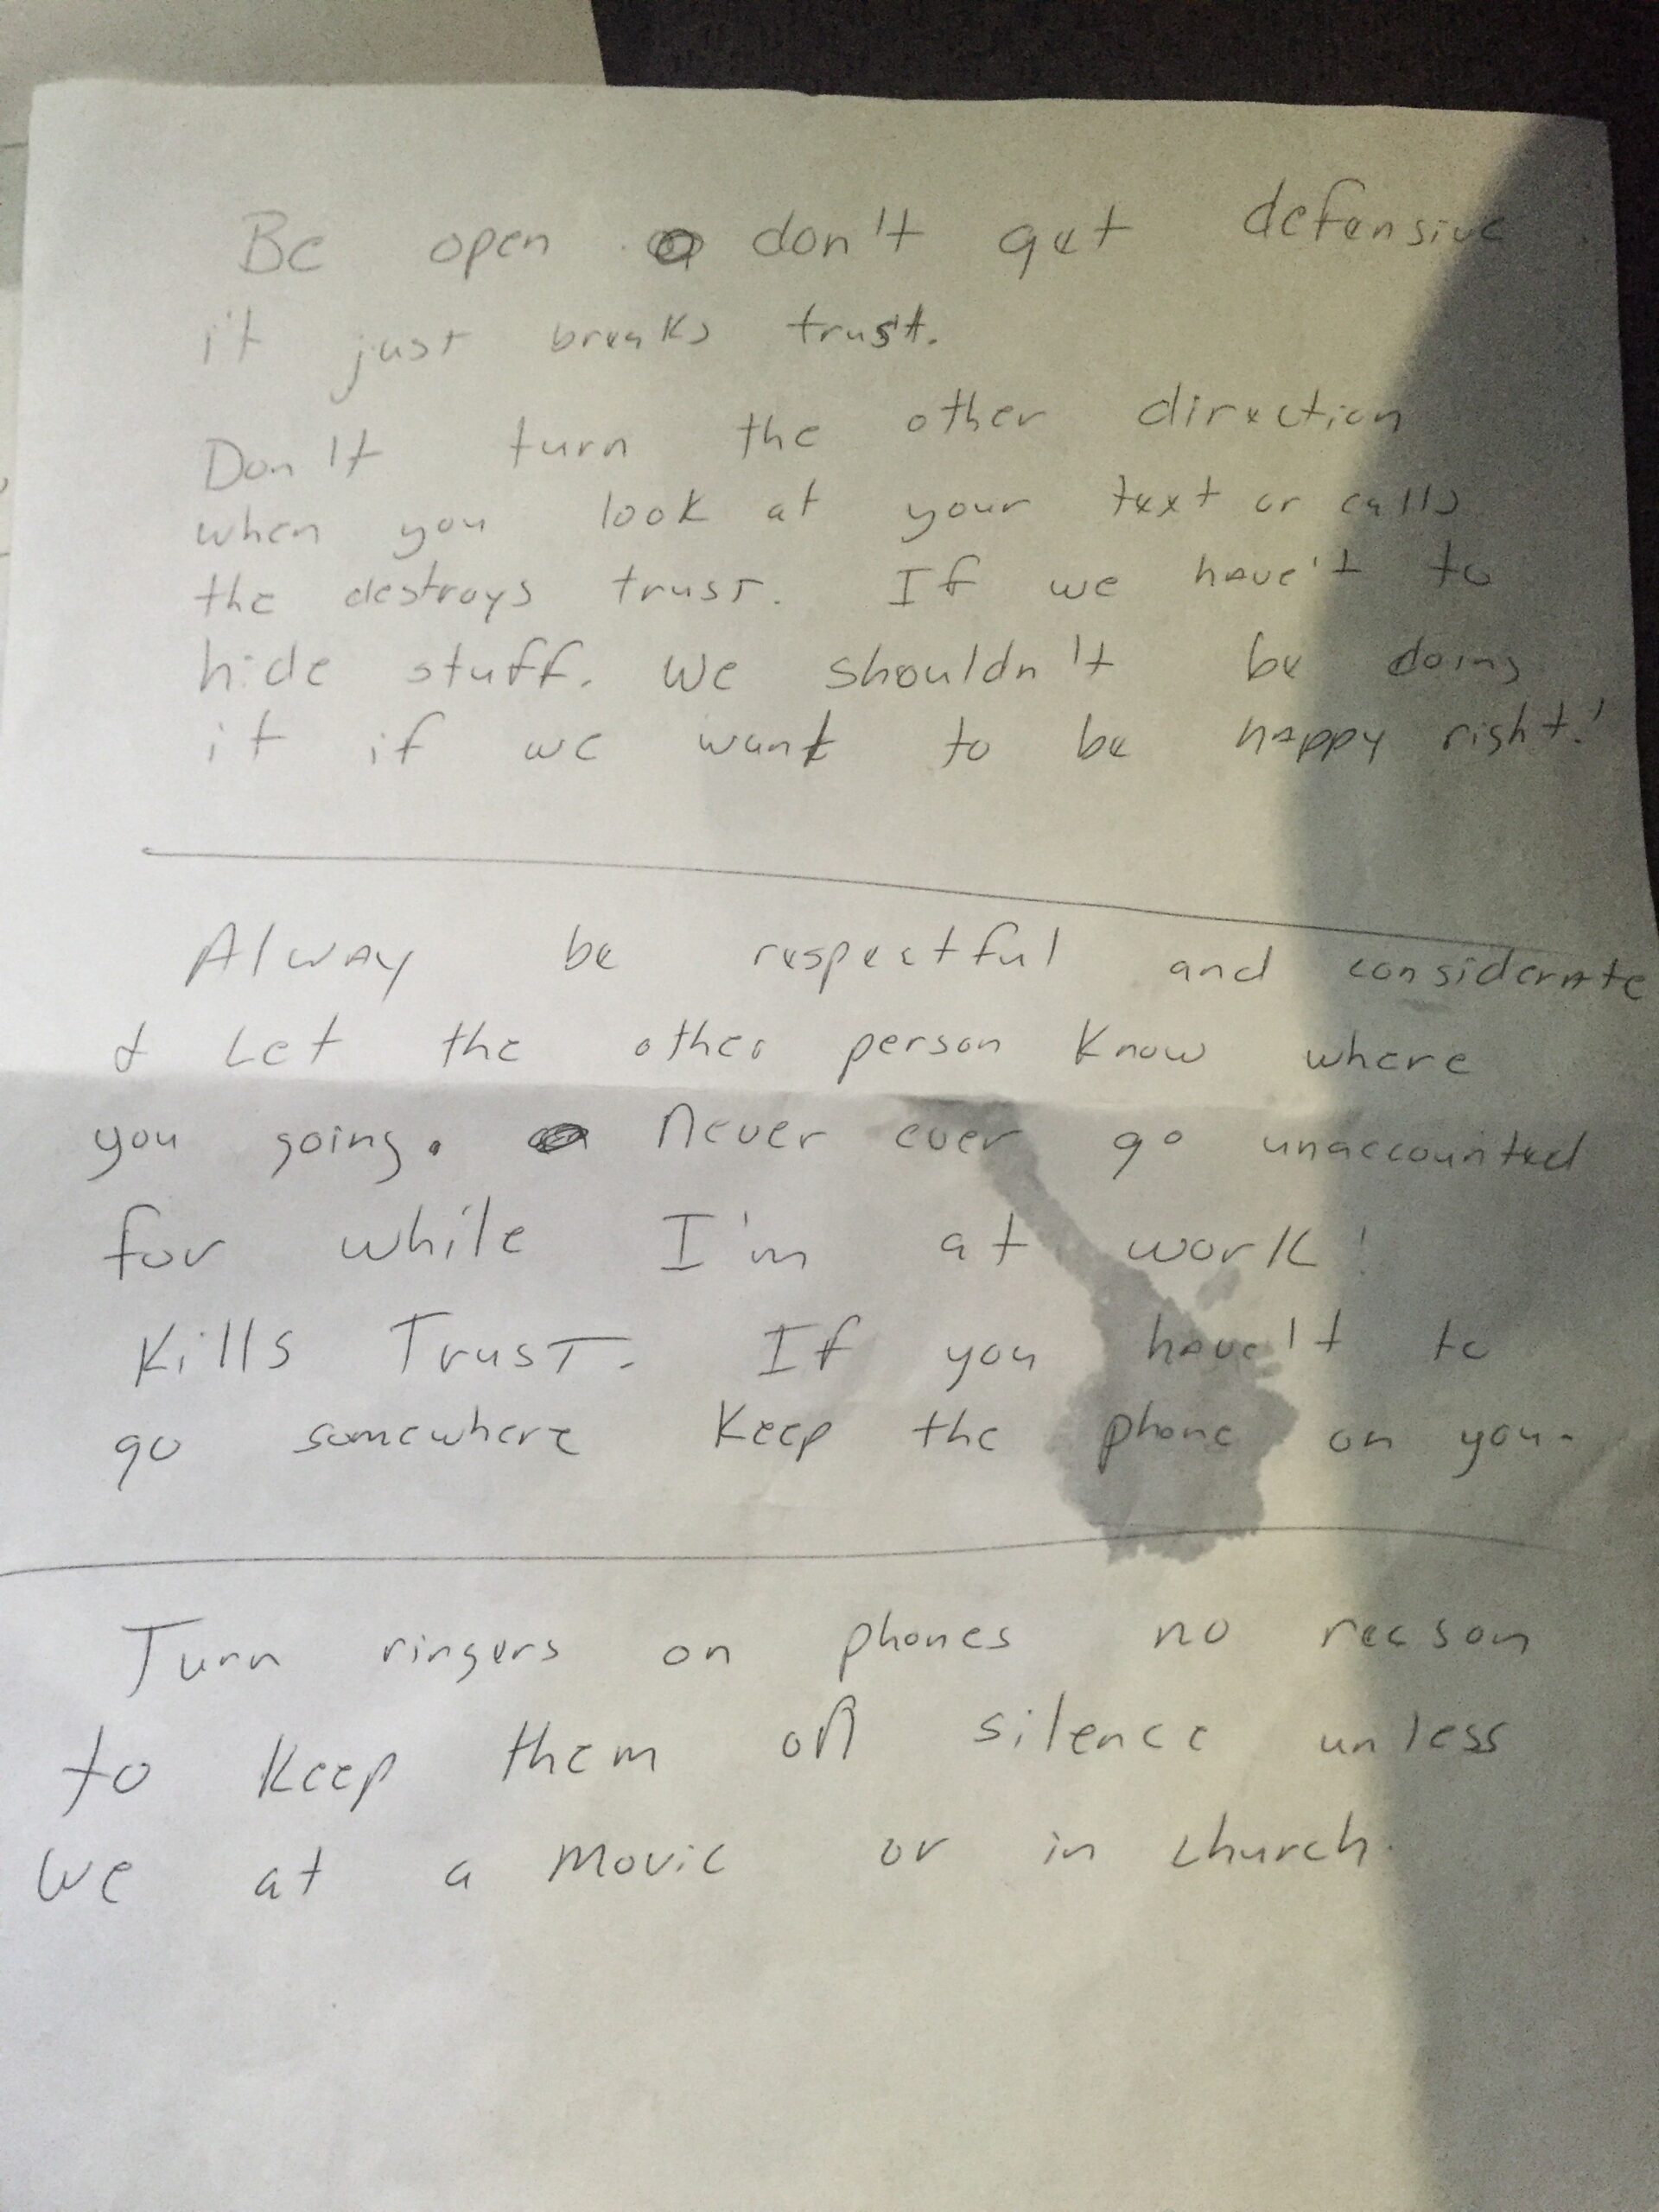 Be open don't get defensive
it just breaks trust.
Don't turn the other direction
when you look at your text or calls
the destroys trust. If we have't to
hide stuff. We shouldn't be doing
it if we want to be happy right!
Alway be respectful and considerate
& Let the other person know where
you going. Never ever go unaccounted
for while I'm at work!
Kills Trust. If you have't to
go somewhere keep the phone on you.
Turn ringers on phones no reason
to keep them off silence unless
we at a movie or in church.